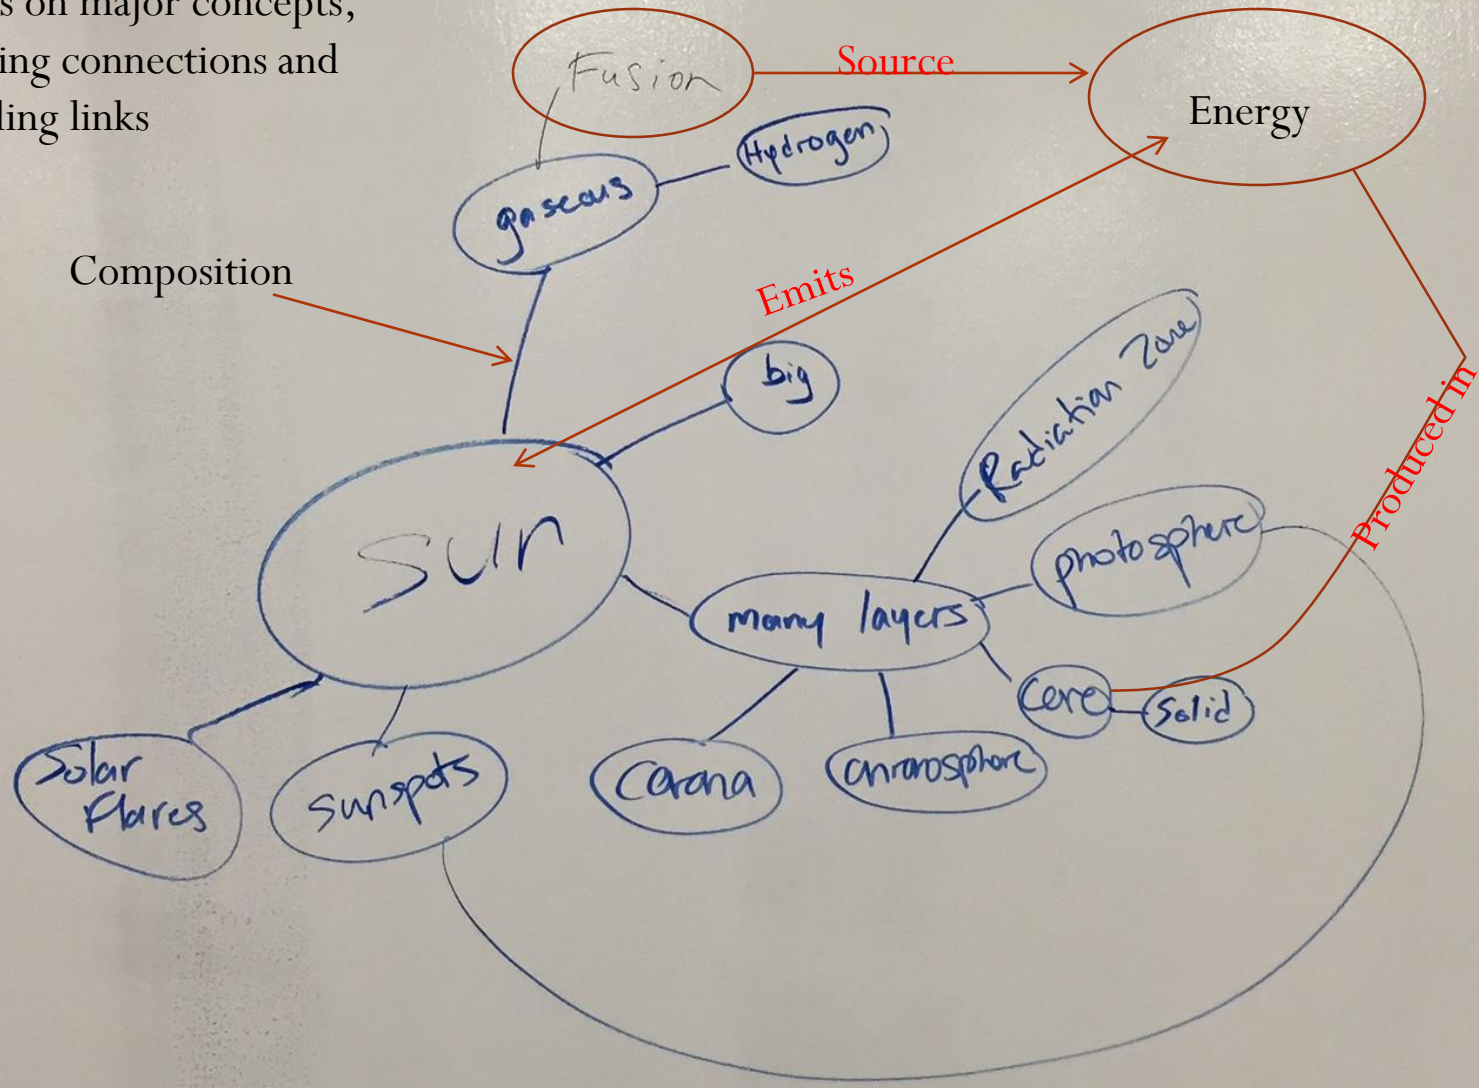 s on major concepts,
ing connections and
ling links
Fusion
Source
Energy
Hydrogen
gaseous
Composition
Emits
big
Radiation Zone
Produced in
Sun
photosphere
many layers
Core
Solid
Solar
Flares
sunspots
Corona